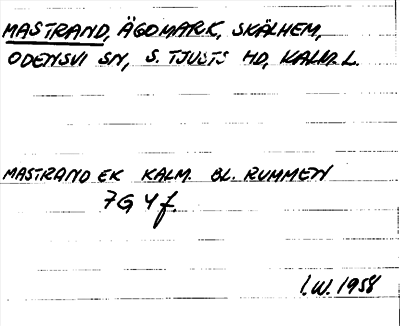 MASTRAND, ÄGOMARK, SKÄLHEM,
ODENSVI SN, S. TJUSTS HD, KALM. L.
MASTRAND EK KALM. BL. RUMMEN
7G 4f.
I.W. 1958